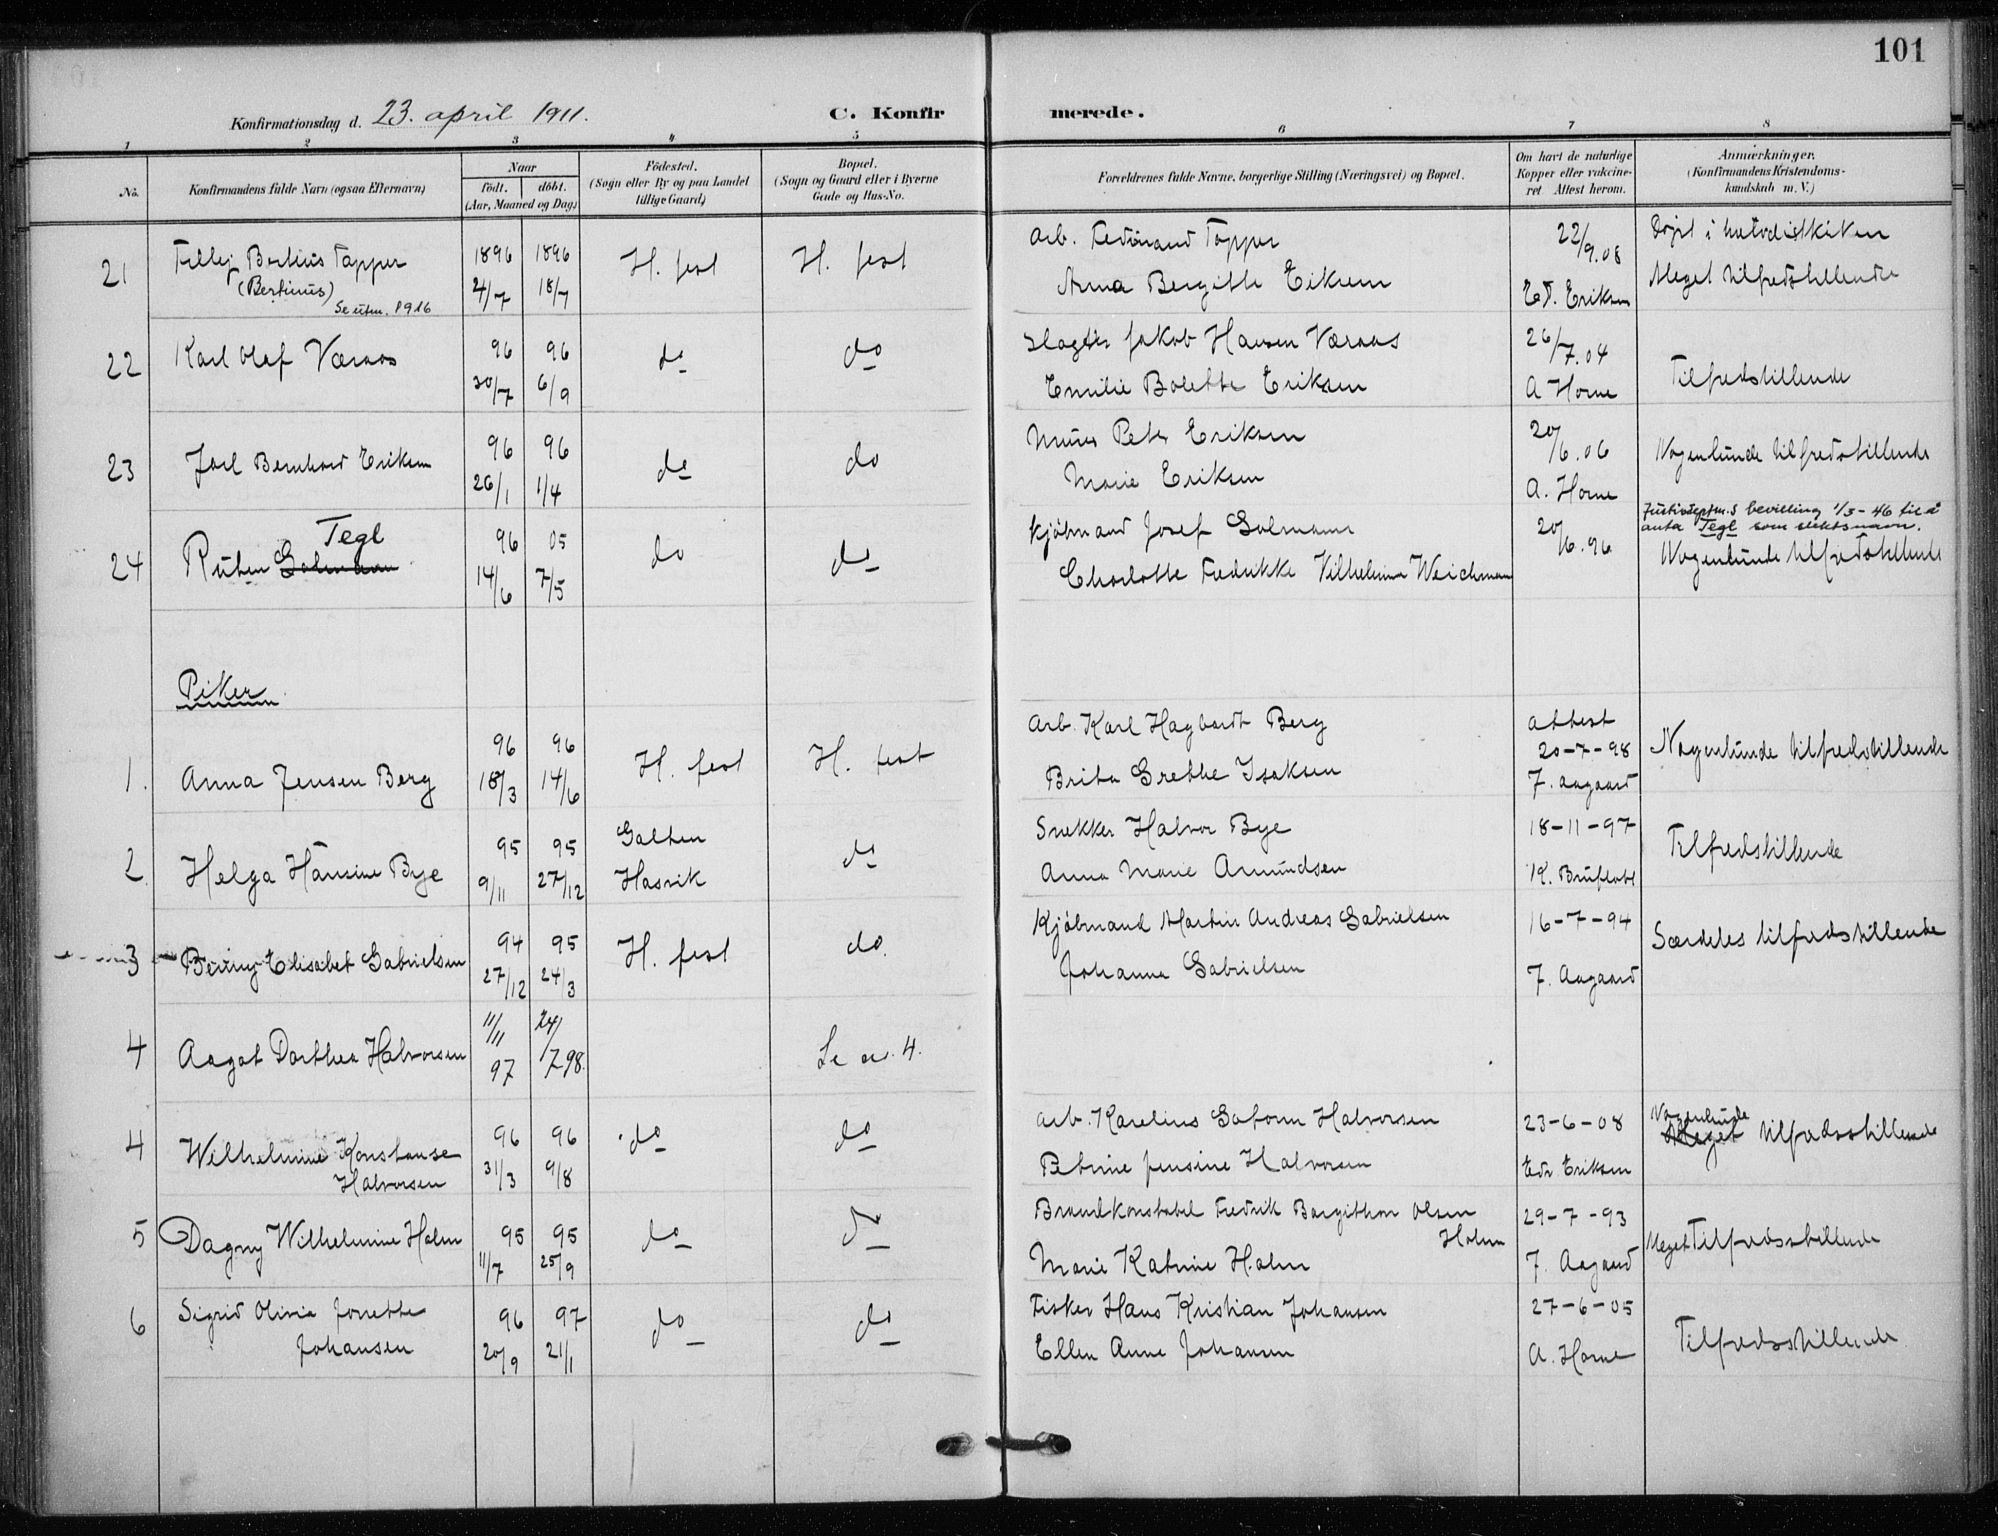 101
Konfirmationsdag d. 23. april 1911. C. Konfirmerede.
1 2 3 4 5 6 7 8
No. Konfirmandens fulde Navn (ogsaa Efternavn) Naar født. døbt. (Aar, Maaned og Dag.) Fødested. (Sogn eller By og paa Landet tillige Gaard.) Bopæl. (Sogn og Gaard eller i Byerne Gade og Hus-No. Forældrenes fulde Navne, borgerlige Stilling (Næringsvei) og Bopæl. Om havt de naturlige Kopper eller vakcineret Attest herom. Anmærkninger. (Konfirmandens Kristendomskundskab m. V.)
21 Bertius Tapper 1896 1896 H. fest H. fest Arb. Ferdinand Tapper 22/9.08 Døpt i
(Bertinus) 24/7 18/7 Anna Bergitte Eiksen Ed. Eriksen Meget tilfredstillende
Se utm. 1916
22 Karl Olaf Væraas 96 96 do do Slagter Jakob Hansen Væraas 26/7.04
30/7 6/9 Emilie Bolette Eriksen A Horne Tilfredstillende
23 Jarl Bernhard Eriksen 96 96 do do Murer Peter Eriksen 20/6.06 Nogenlunde tilfredstillende
26/1 1/4 Marie Eriksen A. Horne
Tegl Justisdeptm.s bevilling 1/3-46 til å
anta Tegl som slektsnavn.
24 Ruben Golmann 96 05 do do Kjøbmand Josef Golmann 20/6.96
14/6 7/5 Charlotte Fredrikke Vilhelmine Weichmann Nogenlunde tilfredstillende
Piker
1. Anna Jensen Berg 96 96 H. fest H. fest Arb. Karl Hagbardt Berg attest 20-7-98 Nogenlunde tilfredstillende
18/3 14/6 Brita Grethe Isaksen F. Aagaard
2 Helga Hansine Bye 95 95 Galten do Snekker Halvor Bye 18-11-97 Tilfredstillende
9/11 27/12 Hasvik Anna Marie Amundsen K. Bruflodt
3 Elisabet Gabrielsen 94 95 H. fest do. Kjøbmand Martin Andreas Gabrielsen 16-7-94 Særdeles tilfredstillende
27/12 24/3 Johanna Gabrielsen F. Aagaard
4 Aagot Dorthea Halvorsen 11/11 97 24/7 98. Se nr. 4.
4 Wilhelmine Konstanse 96 96 do do Arb. Karelius Gotfom Halvorsen 23-6-08 Nogenlunde Meget tilfredsstillende
Halvorsen 31/3 9/8 Petrine Jensine Halvorsen Edv Eriksen
5 Dagny Wilhelmine Holm 95 95 do do Brandkonstabel Fredrik Bergithon Olsen 29-7-93 Meget Tilfredsstillende
11/7 25/9 Holm
Marie Katrine Holm F. Aagaard
6 Sigrid Olivia Jonette 96 97 do do Fisker Hans Kristian Johansen 27-6-05 Tilfredsstillende
Johansen 20/9 21/1 Ellen Anne Johansen A. Horne